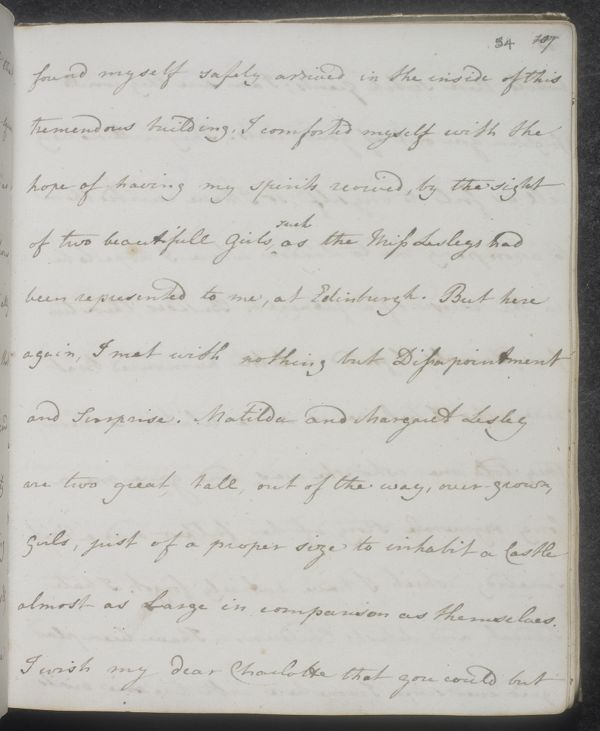 34 107
found myself safely arrived in the inside of this
tremendous building, I comforted myself with the
hope of having my spirits revived, by the sight
of two beautifull Girls, such as the Miss Lesleys had
been represented to me, at Edinburgh. But here
again, I met with nothing but Disapointment
and Surprise. Matilda and Margaret Lesley
are two great, tall, out of the way, over-grown,
Girls, just of a proper size to inhabit a Castle
almost as Large in comparison as themselves.
I wish my dear Charlotte that you could but